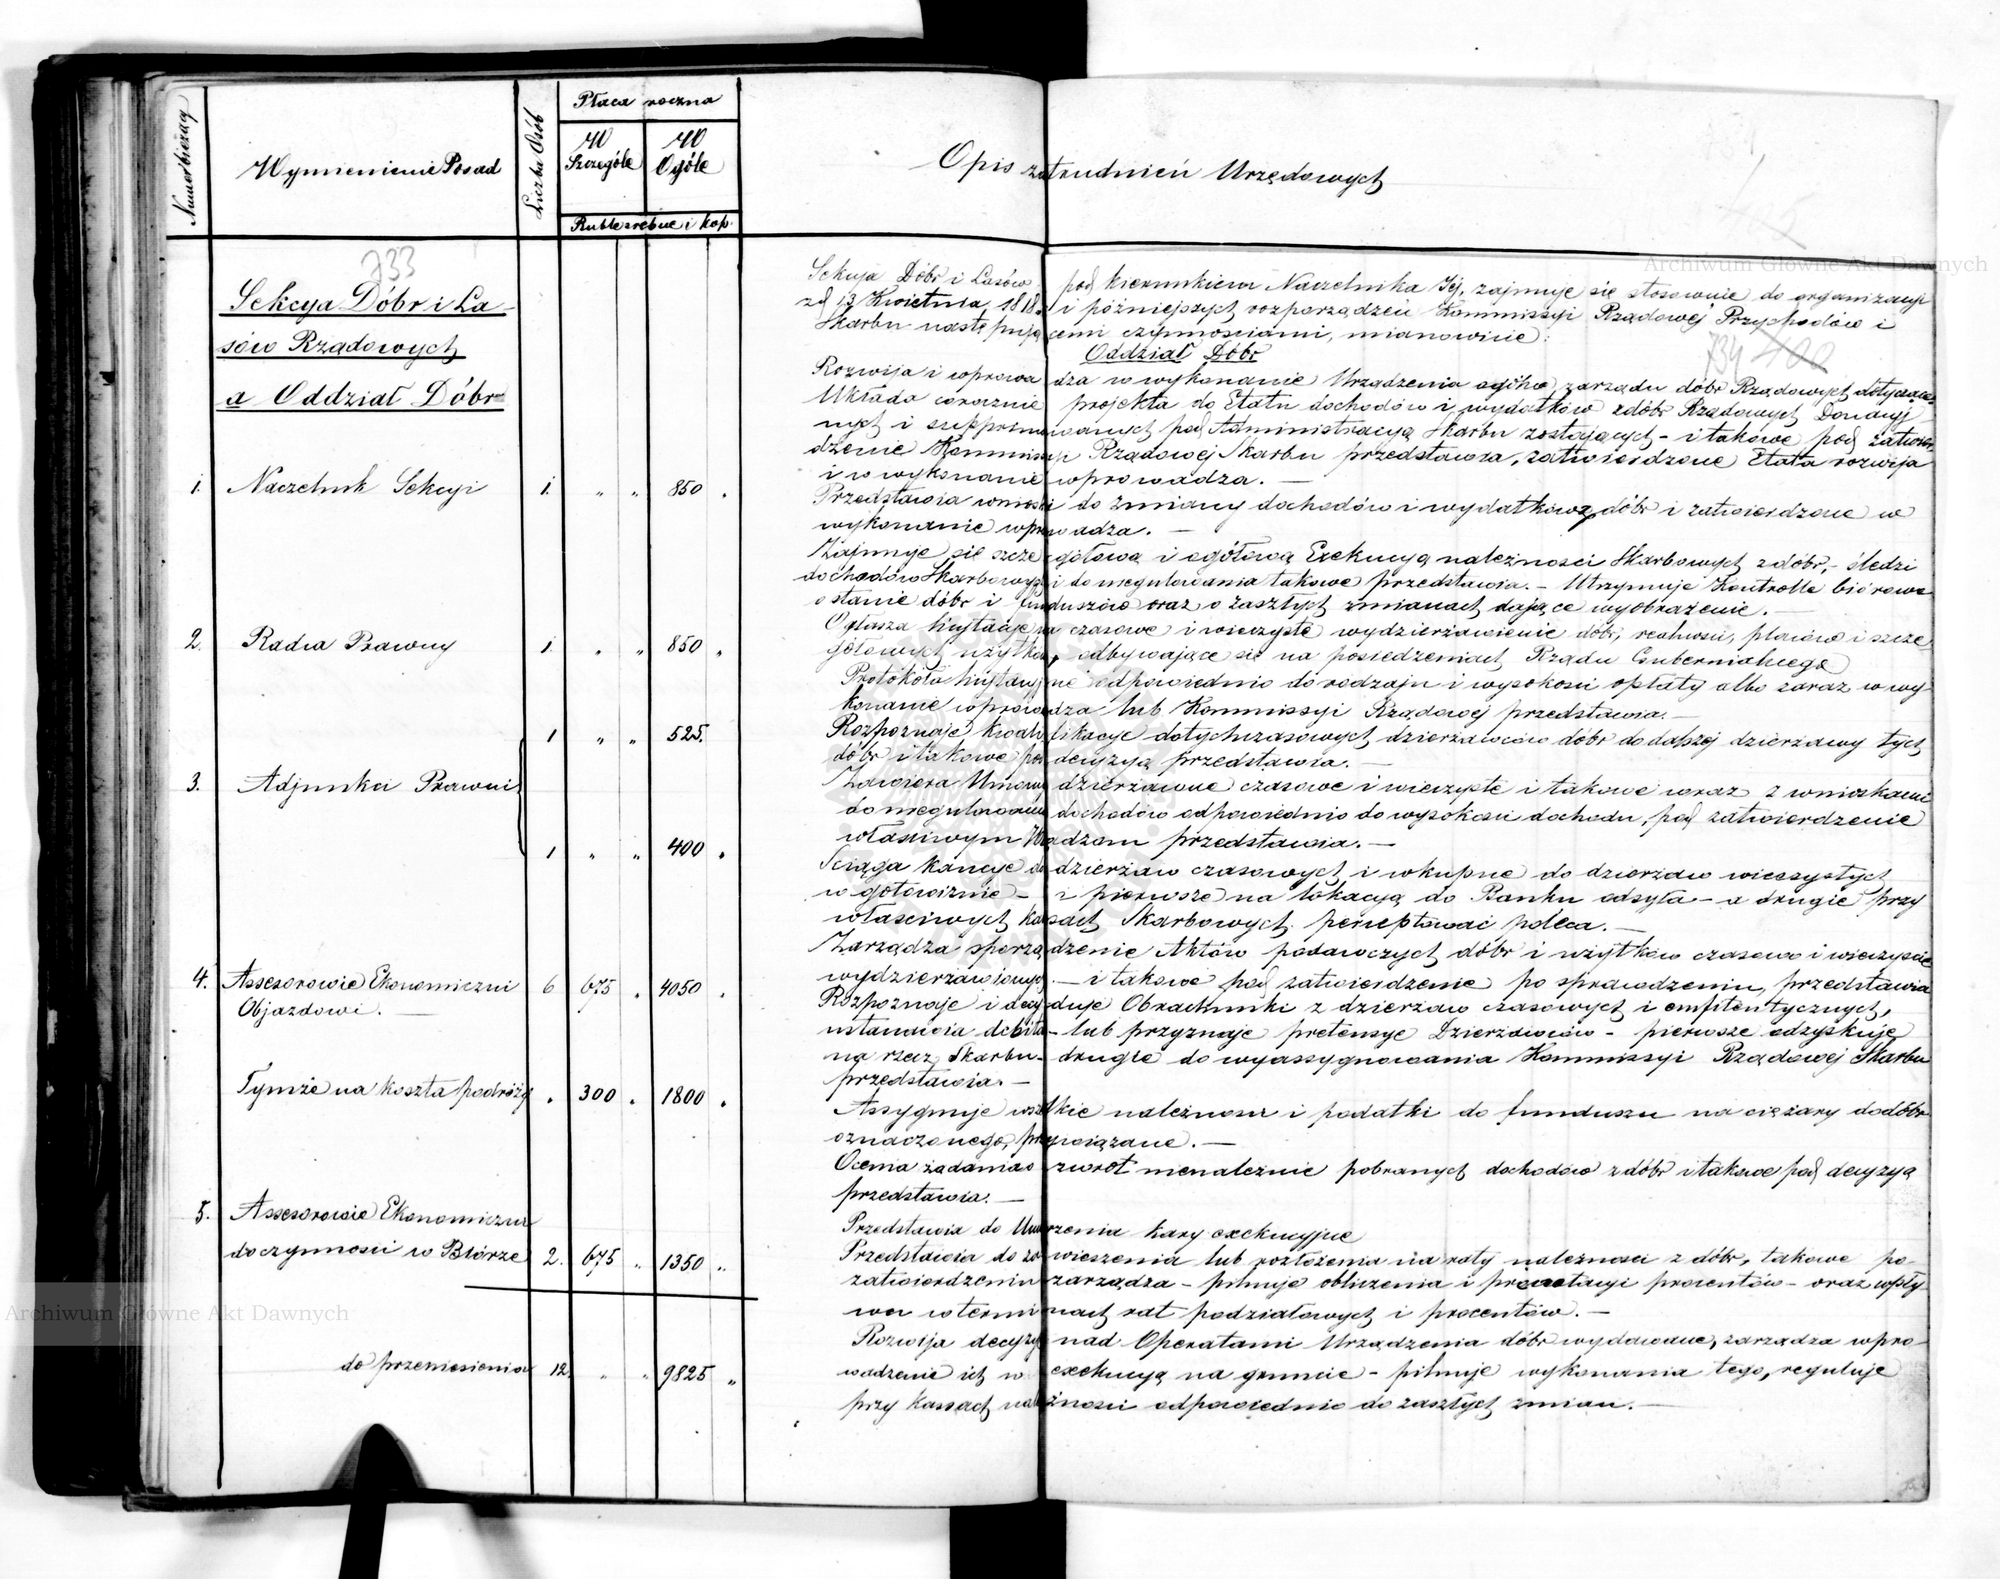 Numer bieżący
Wymienienie Posad
Liczba Osób
Płaca roczna
W Szczególe
W Ogóle
Ruble srebne i kop.
Opis zatrudnień Urzędowych
733
Sekcya Dóbr i La-
sów Rządowych
a Oddział Dóbr
1. Naczelnik Sekcyi 1. " " 850 "
2. Radca Prawny 1. " " 850 "
1 " " 525.
3. Adjunkci Prawni
1 " " 400 "
4. Assesorowie Ekonomiczni 6 675 " 4050 "
Objazdowi. —
Tymże na koszta podróży " 300 " 1800 "
5. Assesorowie Ekonomiczni
do czynności w Biórze 2. 675 " 1350 "
do przeniesienia 12. " " 9825 "
Sekcya Dóbr i Lasów pod kierunkiem Naczelnika Jej, zajmuje się stosownie do organizacyi
z d. 13 Kwietnia 1818. i późniejszych rozporządzeń Kommissyi Rządowej Przychodów i
Skarbu następującemi czynnościami, mianowicie:
734 400
Oddział Dóbr
Rozwija i wprowadza w wykonanie Urządzenia ogólne zarządu dóbr Rządowych dotyczące
Układa corocznie projekta do Etatu dochodów i wydatków z dóbr Rządowych Donacyj
nych i supprimowanych pod Administracyą Skarbu zostających - i takowe pod zatwier
dzenie Kommissyi Rządowej Skarbu przedstawia, zatwierdzone Etata rozwija
i w wykonanie wprowadza. —
Przedstawia wnioski do zmiany dochodów i wydatków z dóbr i zatwierdzone w
wykonanie wprowadza. —
Zajmuje się szczegółową i ogółową Exekucyą należności Skarbowych z dóbr, - śledzi
dochodów Skarbowych i do uregulowania takowe przedstawia. - Utrzymuje Kontrolle biórowe
o stanie dóbr i funduszów oraz o zaszłych zmianach dające wyobrażenie. —
Ogłasza licytacje na czasowe i wieczyste wydzierżawienie dóbr, realności, placów i szcze
gółowych użytków, odbywające się na posiedzeniach Rządu Gubernialnego
Protokóła licytacyjne odpowiednio do rodzaju i wysokości opłaty albo zaraz w wy
konanie wprowadza lub Kommissyi Rządowej przedstawia. —
Rozpoznaje kwalifikacye dotychczasowych dzierżawców dóbr do dalszej dzierżawy tych
dóbr i takowe pod decyzyą przedstawia. —
Zawiera Umowy dzierżawne czasowe i wieczyste i takowe wraz z wnioskami
do uregulowania dochodów odpowiednio do wysokości dochodu, pod zatwierdzenie
właściwym Władzom przedstawia. —
Ściąga kaucye do dzierżaw czasowych i wkupne do dzierżaw wieczystych
w gotowiznie - i pierwsze na lokacyą do Banku odsyła - a drugie przy
właściwych kassach Skarbowych perceptować poleca. —
Zarządza sporządzenie Aktów podawczych dóbr i użytków czasowo i wieczyście
wydzierżawionych — i takowe pod zatwierdzenie po sprawdzeniu, przedstawia
Rozpoznaje i decyduje Obrachunki z dzierżaw czasowych i emfiteutycznych,
ustanawia debita - lub przyznaje pretensye Dzierżawców - pierwsze odzyskuje
na rzecz Skarbu - drugie do wyassygnowania Kommissyi Rządowej Skarbu
przedstawia. —
Assygnuje wszelkie należności i podatki do funduszu na ciężary do dóbr
oznaczonego, przywiązane. —
Ocenia żądania o zwrot nienależnie pobranych dochodów z dóbr i takowe pod decyzyą
przedstawia. —
Przedstawia do Umorzenia kary exekucyjne
Przedstawia do zawieszenia lub rozłożenia na raty należności z dóbr, takowe po
zatwierdzeniu zarządza - pilnuje obliczenia i procentów - oraz wpły
wu w terminach rat podziałowych i procentów. —
Rozwija decyzye nad Operatami Urządzenia dóbr wydawane, zarządza wpro
wadzenie ich w exekucyą na gruncie - pilnuje wykonania tego, reguluje
przy kassach należności odpowiednio do zaszłych zmian. —
Archiwum Główne Akt Dawnych
Archiwum Główne Akt Dawnych